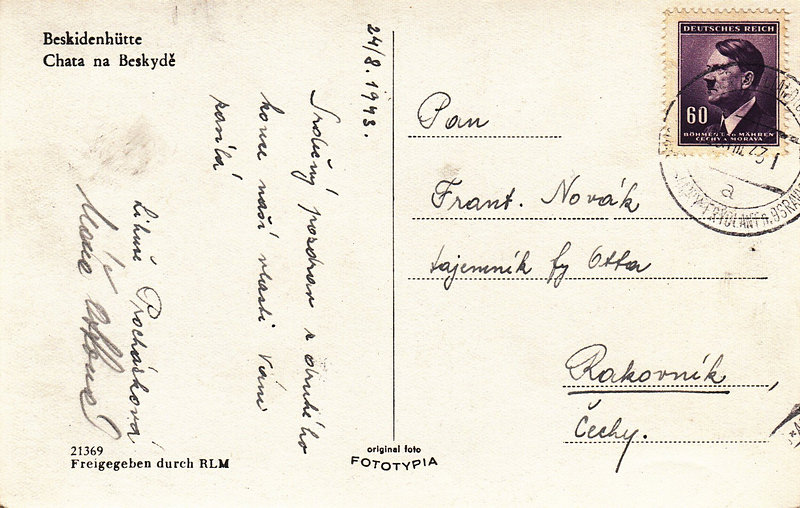 Beskidenhütte
Chata na Beskydě
24/8. 1943.
Srdečný pozdrav z druhého
konce naší vlasti Vám
zasílá
Libuše Procházková
21369
Freigegeben durch RLM
original foto
FOTOTYPIA
Pan
Frant. Novák
tajemník fy Otta
Rakovník,
Čechy.
DEUTSCHES REICH
60
BÖHMEN u. MÄHREN
ČECHY a MORAVA
a